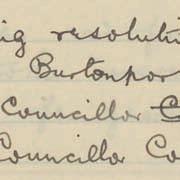 ig resoluti
Burtonpor
Councillor C
Councillor Co